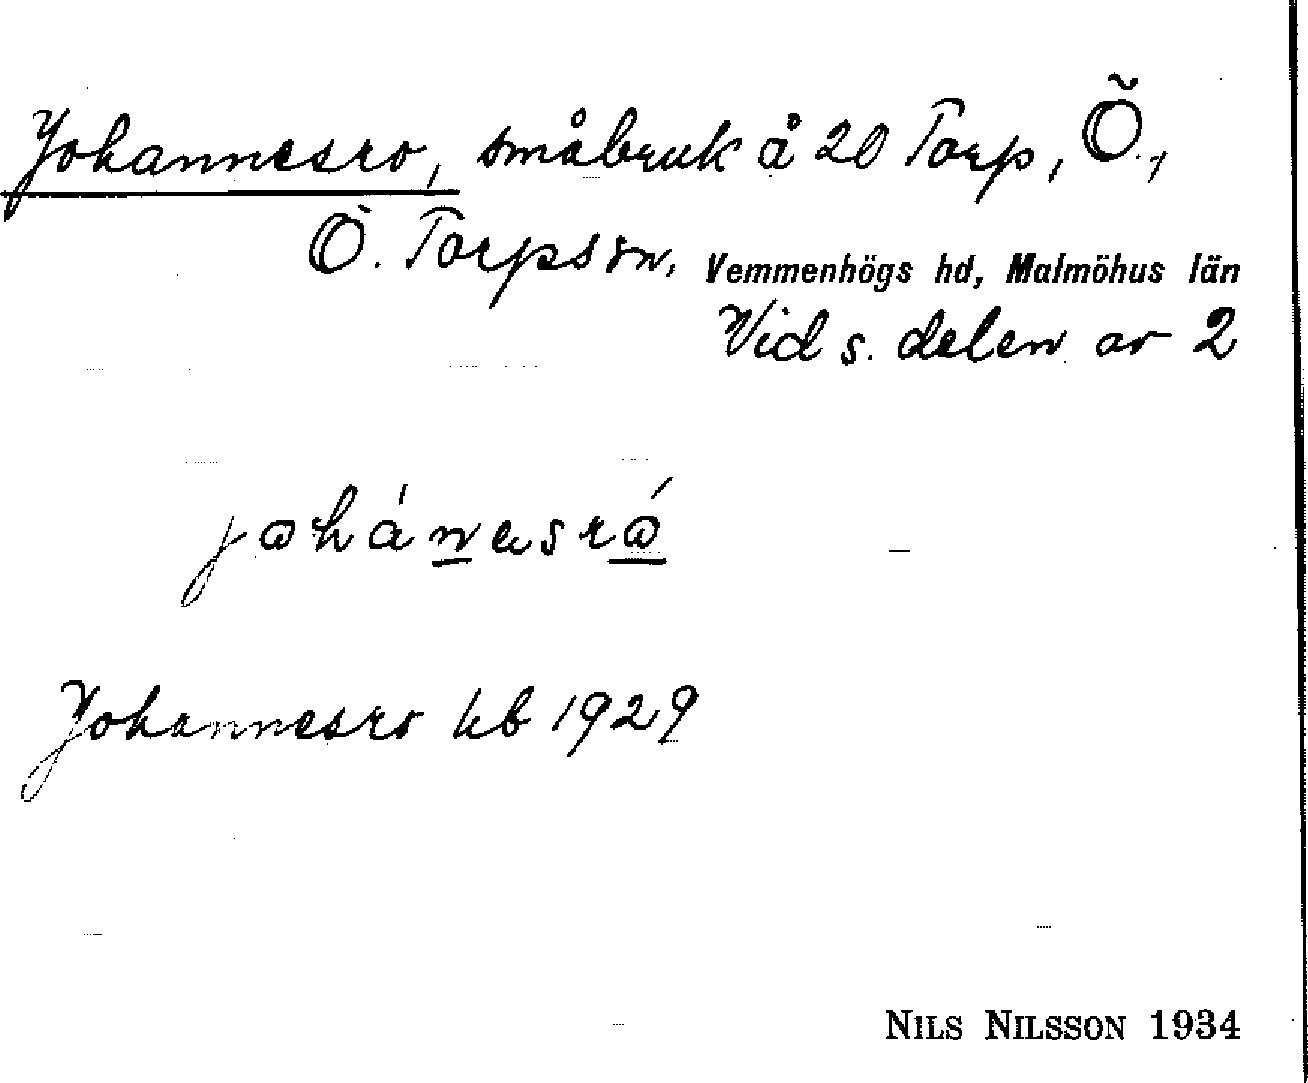 Johannesro, småbruk å 20 Torp, Ö.,
Ö. Torps sn, Vemmenhögs hd, Malmöhus län
Vid s. delen av 2
johánesró
Johannesro kb 1929
NILS NILSSON 1934